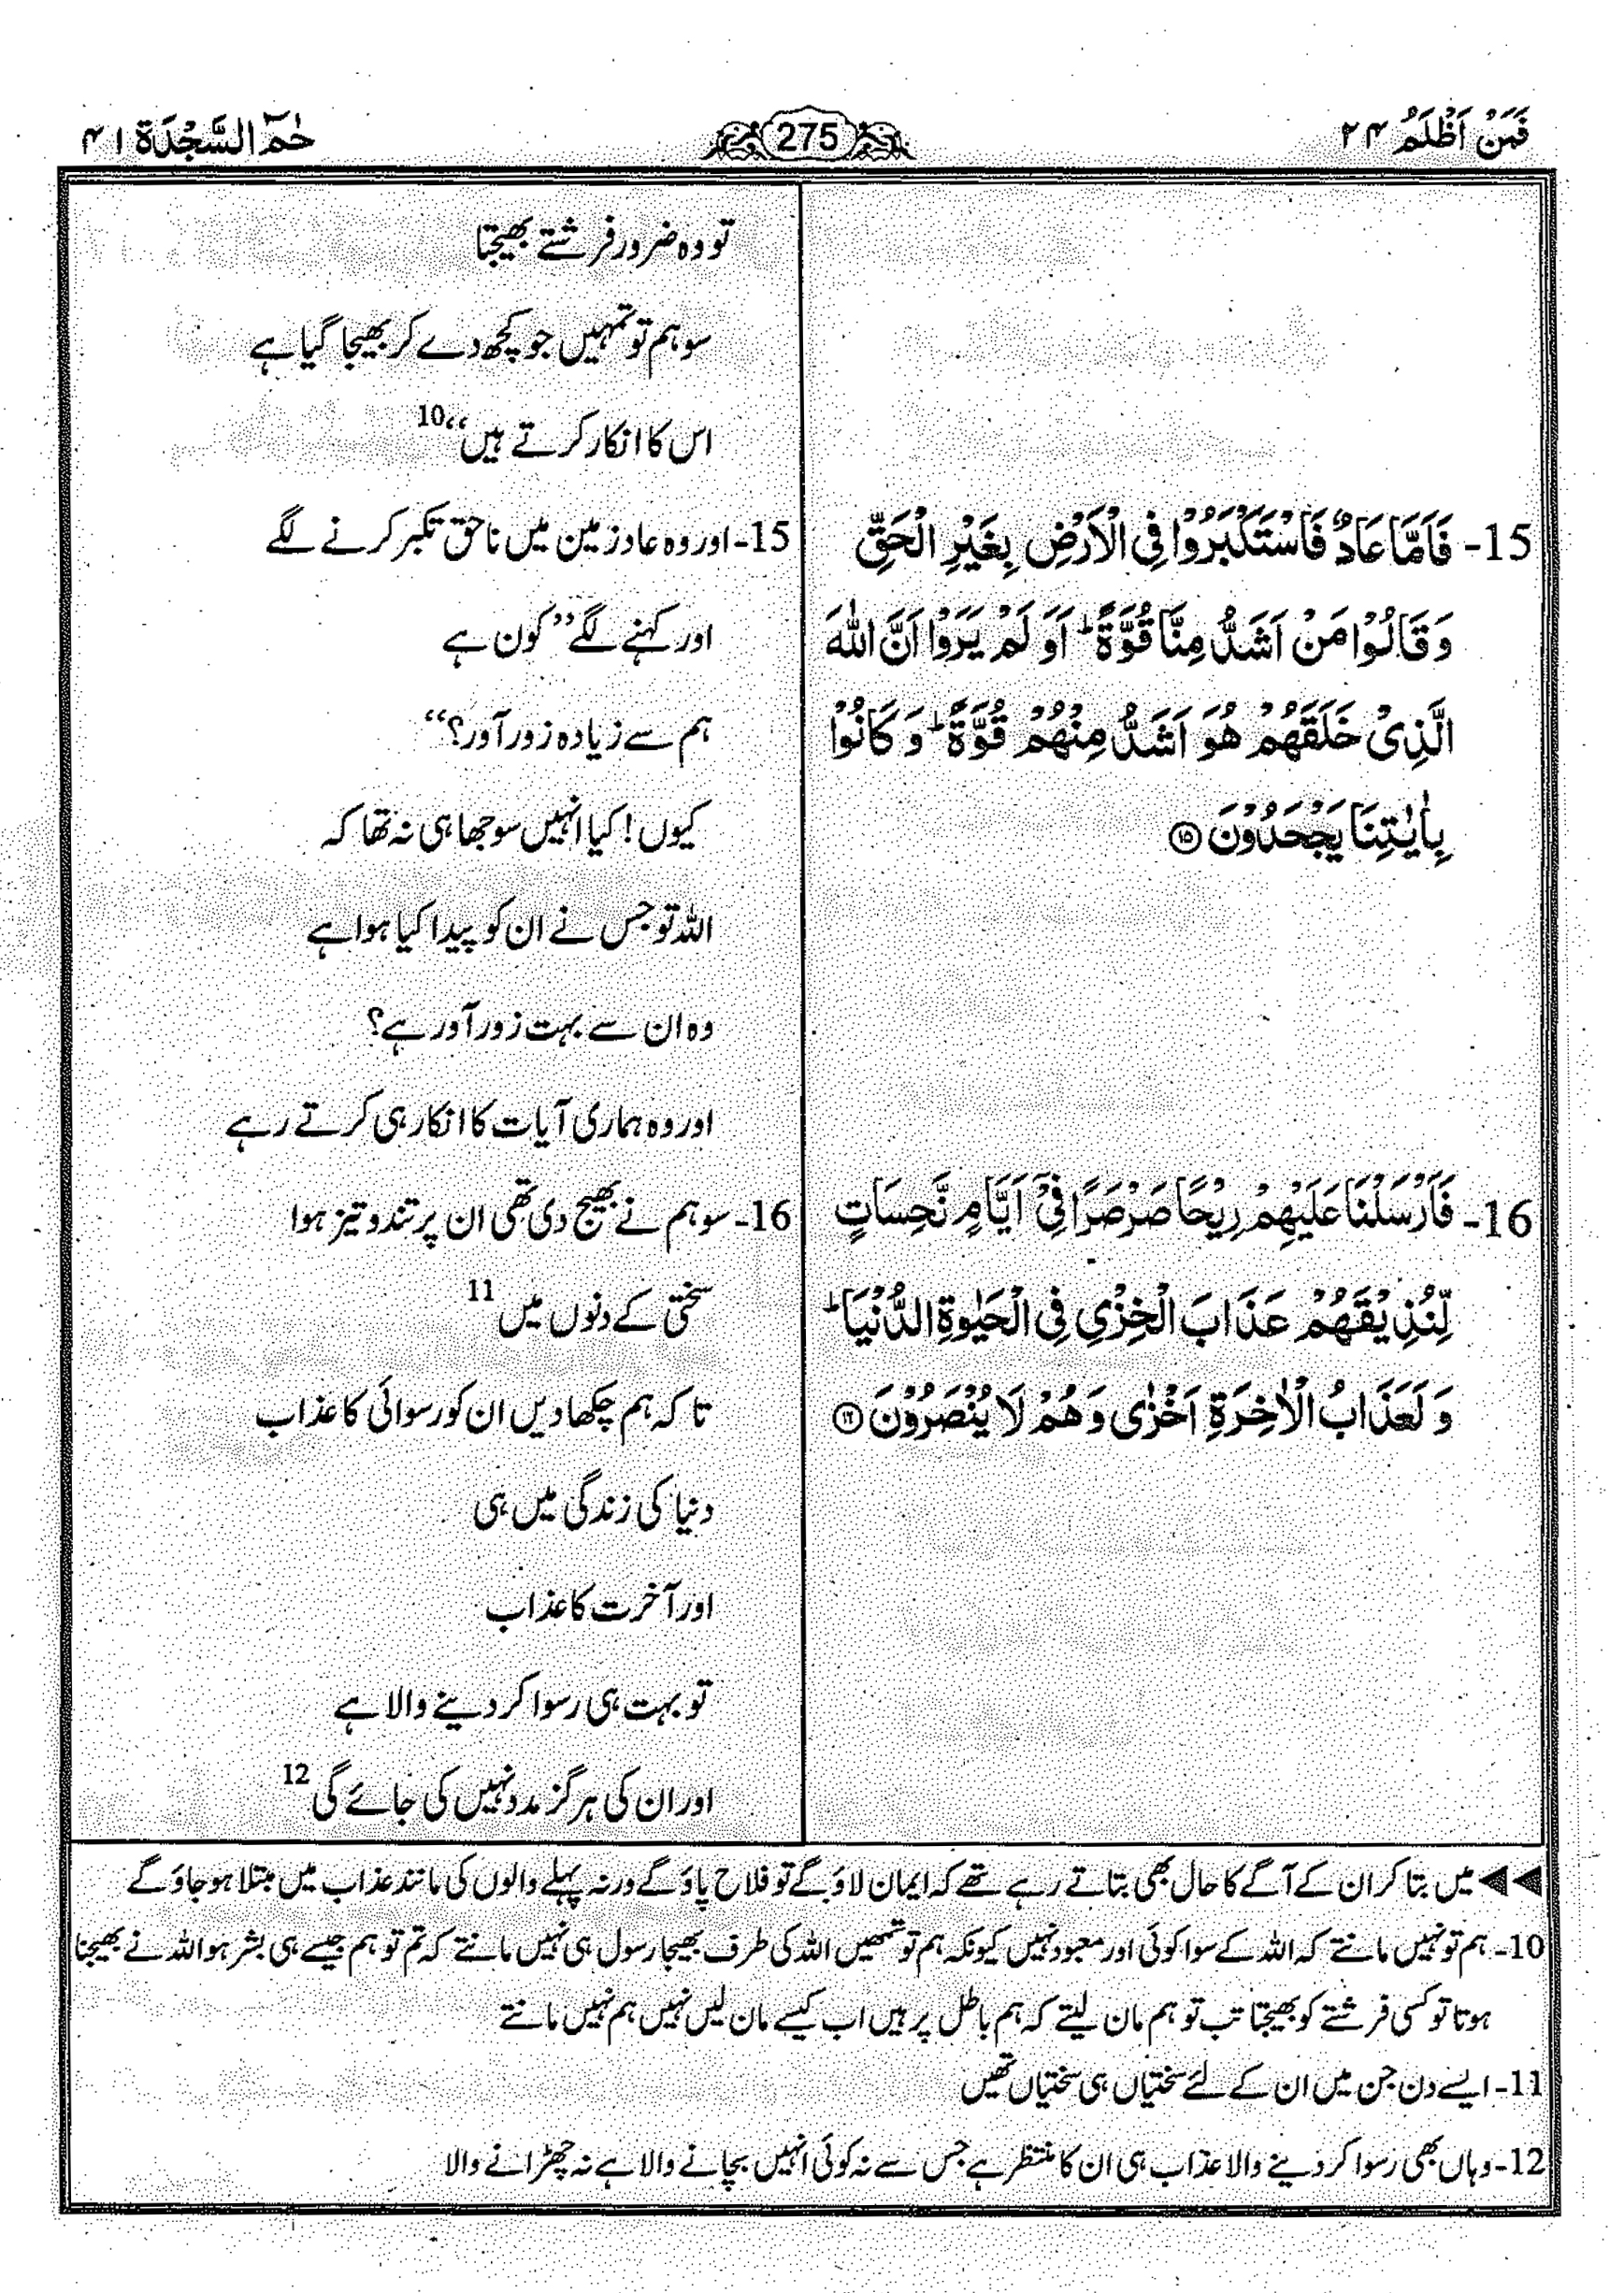 فَمَنْ اَظْلَمُ ۲۴
275
حٰمٓ السَّجْدَة ۴۱
15- فَاَمَّا عَادٌ فَاسْتَكْبَرُوْا فِى الْاَرْضِ بِغَيْرِ الْحَقِّ
وَقَالُوْا مَنْ اَشَدُّ مِنَّا قُوَّةً ؕ اَوَ لَمْ يَرَوْا اَنَّ اللّٰهَ
الَّذِىْ خَلَقَهُمْ هُوَ اَشَدُّ مِنْهُمْ قُوَّةً ؕ وَ كَانُوْا
بِاٰيٰتِنَا يَجْحَدُوْنَ ۝۱۵
16- فَاَرْسَلْنَا عَلَيْهِمْ رِيْحًا صَرْصَرًا فِىْۤ اَيَّامٍ نَّحِسَاتٍ
لِّنُذِيْقَهُمْ عَذَابَ الْخِزْىِ فِى الْحَيٰوةِ الدُّنْيَا ؕ
وَ لَعَذَابُ الْاٰخِرَةِ اَخْزٰى وَهُمْ لَا يُنْصَرُوْنَ ۝۱۶
تو وہ ضرور فرشتے بھیجتا
سو ہم تو تمہیں جو کچھ دے کر بھیجا گیا ہے
اس کا انکار کرتے ہیں‘‘10
15- اور وہ عاد زمین میں ناحق تکبر کرنے لگے
اور کہنے لگے ’’کون ہے
ہم سے زیادہ زور آور؟‘‘
کیوں! کیا انہیں سوجھا ہی نہ تھا کہ
اللہ تو جس نے ان کو پیدا کیا ہوا ہے
وہ ان سے بہت زور آور ہے؟
اور وہ ہماری آیات کا انکار ہی کرتے رہے
16- سو ہم نے بھیج دی تھی ان پر تند و تیز ہوا
سختی کے دنوں میں 11
تا کہ ہم چکھا دیں ان کو رسوائی کا عذاب
دنیا کی زندگی میں ہی
اور آخرت کا عذاب
تو بہت ہی رسوا کر دینے والا ہے
اور ان کی ہرگز مدد نہیں کی جائے گی 12
◀◀ میں بتا کر ان کے آگے کا حال بھی بتاتے رہے تھے کہ ایمان لاؤ گے تو فلاح پاؤ گے ورنہ پہلے والوں کی مانند عذاب میں مبتلا ہو جاؤ گے
10- ہم تو نہیں مانتے کہ اللہ کے سوا کوئی اور معبود نہیں کیونکہ ہم تو تمھیں اللہ کی طرف بھیجا رسول ہی نہیں مانتے کہ تم تو ہم جیسے ہی بشر ہو اللہ نے بھیجنا
ہوتا تو کسی فرشتے کو بھیجتا تب تو ہم مان لیتے کہ ہم باطل پر ہیں اب کیسے مان لیں نہیں ہم نہیں مانتے
11- ایسے دن جن میں ان کے لئے سختیاں ہی سختیاں تھیں
12- وہاں بھی رسوا کر دینے والا عذاب ہی ان کا منتظر ہے جس سے نہ کوئی انہیں بچانے والا ہے نہ چھڑانے والا